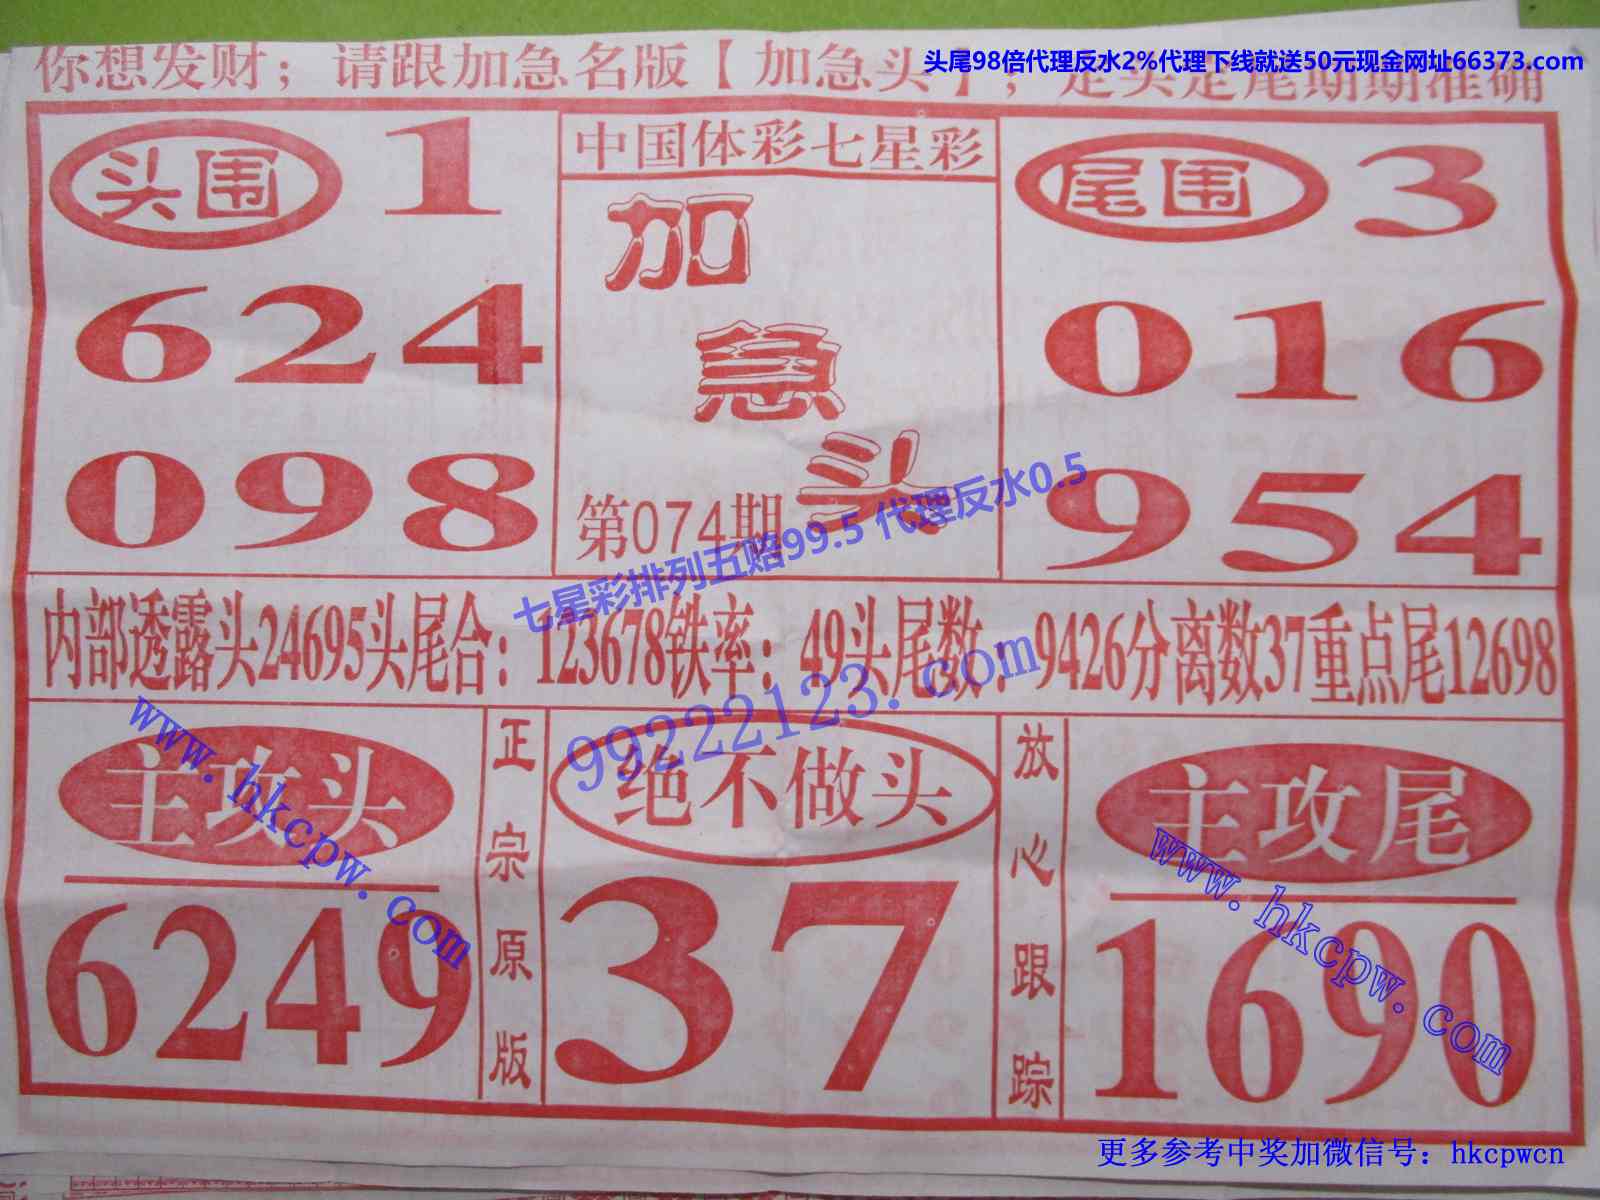 头尾98倍代理反水2%代理下线就送50元现金网址66373.com
你想发财；请跟加急名版【加急头】；定头定尾期期准确
头围 1
624
098
中国体彩七星彩
加急头
第074期
尾围 3
016
954
七星彩排列五赔99.5 代理反水0.5
内部透露头24695头尾合：123678铁率：49头尾数：9426分离数37重点尾12698
99222123.com
主攻头
6249
www.hkcpw.com
正宗原版
绝不做头
37
放心跟踪
主攻尾
1690
www.hkcpw.com
更多参考中奖加微信号：hkcpwcn